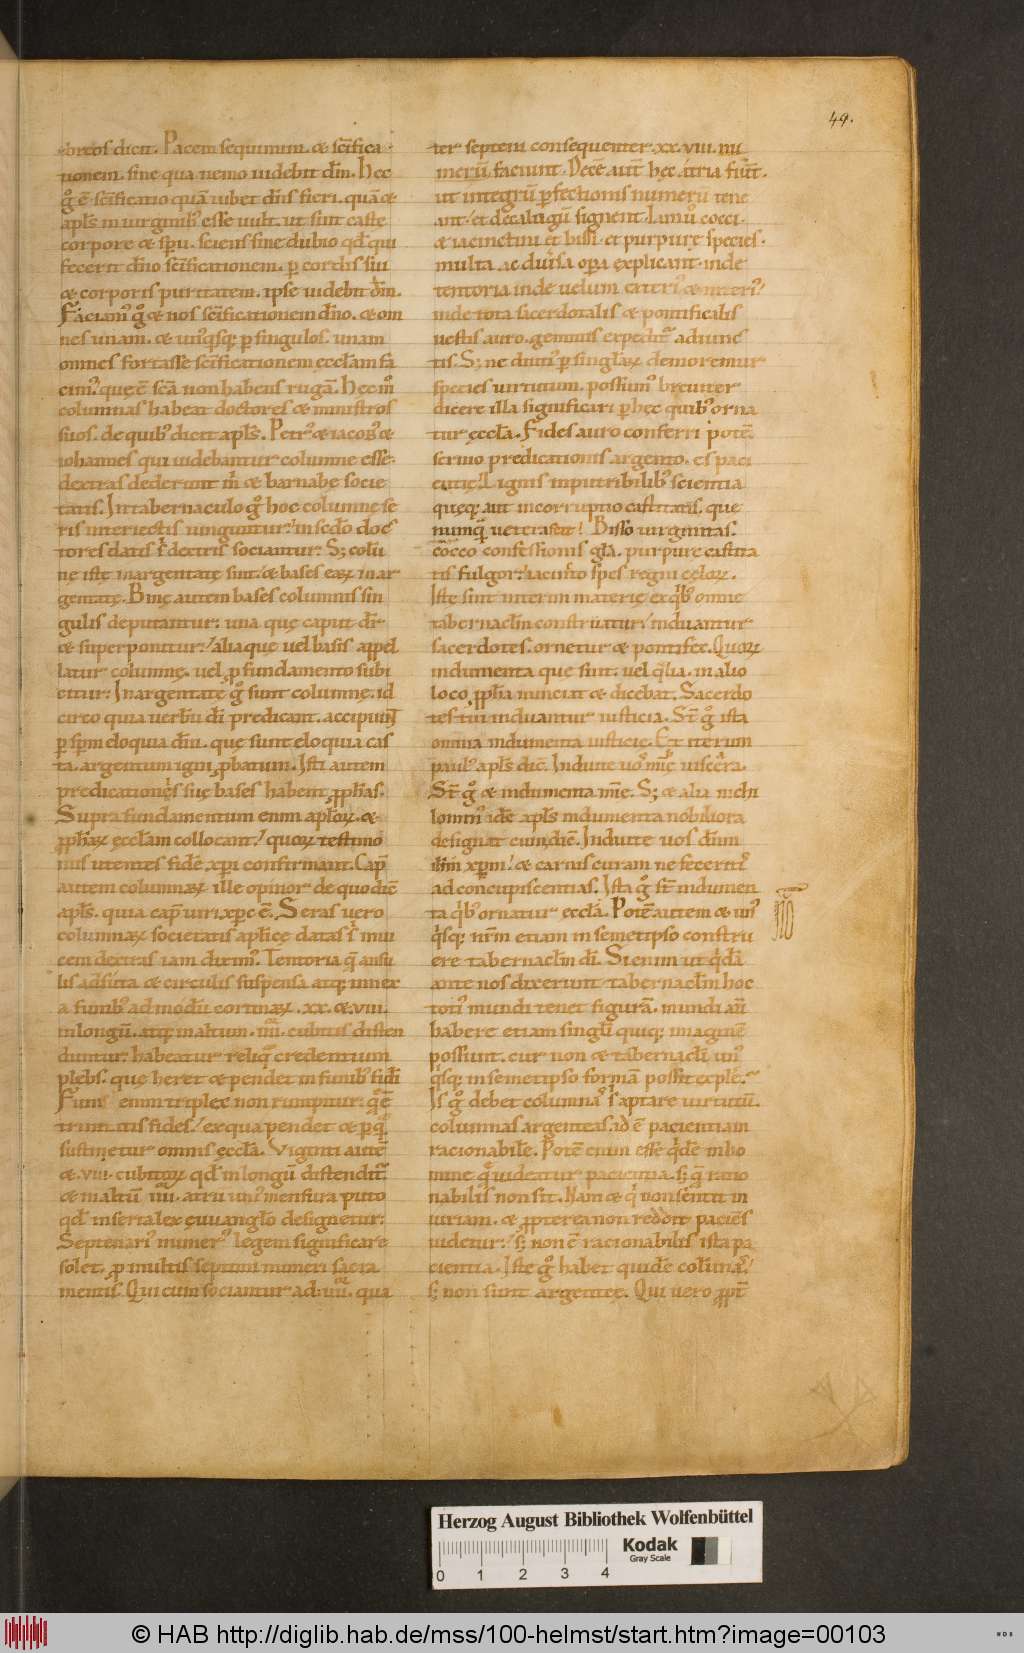 49.
breos dicit. Pacem sequimini. & sc̄ifica
tionem. sine qua nemo uidebit dm̄. Hec
g̊ ē sc̄ificatio quā iubet dn̄s fieri. quā &
apl̄s in uirginibꝰ esse uult. ut sint caste
corpore & sp̄u. sciens sine dubio qd̄ qui
fecerit dn̄o sc̄ificationem. ꝑ cordis sui
& corporis puritatem. ipse uidebit dm̄.
Faciamꝰ g̊ & nos sc̄ificationem dn̄o. & om
nes unam. & unꝰqsq; ꝑ singulos. unam
omnes fortasse sc̄ificationem ęccl̄am fa
cimꝰ. quę ē sc̄a non habens rugā. Hec
columnas habeat doctores & ministros
suos. de quibꝰ dicit apl̄s. Petrꝰ & iacobꝰ &
iohannes qui uidebantur columne esse.
dextras dederunt m̄ & barnabę socie
tatis. In tabernaculo g̊ hoc columnę se
ris interiectis iunguntur. in sc̄do doc
tores datis dextris sociantur. S; colū
ne istę inargentatę sint. & bases eaꝝ inar
gentatę. Binę autem bases columnis sin
gulis deputantur. una quę caput dr̄
& superponitur. alia que uel basis appel
latur columnę. uel ꝓ fundamento subi
citur. Inargentatę g̊ sunt columnę. id
circo quia uerbū dī predicant. accipiunt
ꝑ sp̄m eloquia dn̄i. quę sunt eloquia cas
ta. argentum igni ꝓbatum. Isti autem
predicationis suę bases habent ꝓph̄as.
Supra fundamentum enim apl̄oꝝ. &
ꝓph̄aꝝ ęccl̄am collocant. quoꝝ testimo
niis utentes fidē xp̄i confirmant. Cap̄
autem columnaꝝ ille opinor de quo dic̄
apl̄s. quia cap̄ uiri xp̄c ē. Seras uero
columnaꝝ societatis apl̄icę datas inui
cem dextras iam diximꝰ. Tentoria q̄ ansu
lis adsuta & circulis suspensa atq; innex
a funibꝰ ad modū cortinaꝝ. xx. & viii.
in longū. atq; in altum. iiii. cubitis disten
duntur. habeatur reliq̄ credentium
plebs. quę heret & pendet in funibꝰ fidī
Funis enim triplex non rumpitur. quę ē
trinitatis fides. ex qua pendet & ꝑ quā
sustinetur omnis ęccl̄a. Viginti autē
&. viii. cubitoꝝ qd̄ in longū distenditur
& in altū iiii. atrii unꝰ mensura puto
qd̄ inserta lex euuangl̄o designetur.
Septenariꝰ numerꝰ legem significare
solet. ꝓ multis septimi numeri sacra
mentis. Qui cum sociantur ad. iiii. qua
ter septem consequenter. xx. viii. nu
merū faciunt. Decē aut̄ hęc atria fiunt.
ut integrū ꝑfectionis numerū tene
ant. et decalogū signent. Iam uo cocci.
& iacinctini et bissi. et purpurę species.
multa ac diuersa opera explicant. inde
tentoria inde uelum exteriꝰ & interiꝰ
inde tota sacerdotalis & pontificalis
uestis auro. gemmis expeditur adiunc
tis. S; ne diutiꝰ ꝑ singulaꝝ demoremur
species uirtutum. possumꝰ breuiter
dicere illa significari ꝑ hęc quibꝰ orna
tur ęccl̄a. Fides auro conferri potē.
sermo predicationis argento. es paci
entię. Lignis inputribilibꝰ scientia
quęq; aut incorruptio castitatis. que
numq̄ ueterascit. Bisso uirginitas.
Cocco confessionis gl̄a. purpure castita
tis fulgor. iacincto spes regni cęloꝝ.
Iste sint interim materię ex qibꝰ omne
tabernacl̄m construatur. induantur
sacerdotes. ornetur & pontifex. Quoꝝ
indumenta que sunt. uel qualia. in alio
loco ꝓph̄a nunciat & dicebat. Sacerdo
tes tui induantur iusticia. St̄ g̊ ista
omnia indumenta iusticię. Et iterum
paulꝰ apl̄s dic̄. Induite uos mīe uiscera.
St̄ g̊ & indumenta mīe. S; & alia nichi
lominꝰ idē apl̄s indumenta nobiliora
designat cum dic̄. Induite uos dn̄m
ih̄m xp̄m. & carnis curam ne feceritis
ad concupiscentias. Ista g̊ st̄ indumen
ta qibꝰ ornatur ęccl̄a. Potē autem & unꝰ
qisq; nr̄m etiam in semetipso constru
ere tabernacl̄m dī. Si enim ut qidā
ante nos dixerunt tabernacl̄m hoc
totiꝰ mundi tenet figurā. mundi aū
habere etiam singuli quiq; imaginē
possunt. cur non & tabernacl̄i unꝰ
qisq; in semetipso formā possit explere.
Is g̊ debet columnas aptare uirtutū.
columnas argenteas id ē pacientiam
racionabile. Potē enim esse qidē in ho
mine q̄ uideatur pacientia. s; q̄ ratio
nabilis non sit. Nam & qi non sentit in
iuriam. & ꝓpterea non reddit paciens
uidetur. s; non ē racionabilis ista pa
cientia. Iste g̊ habet quidē colūnas.
s; non sunt argentęę. Qui uero ꝓpt̄
Herzog August Bibliothek Wolfenbüttel
Kodak
Gray Scale
0 1 2 3 4
© HAB http://diglib.hab.de/mss/100-helmst/start.htm?image=00103